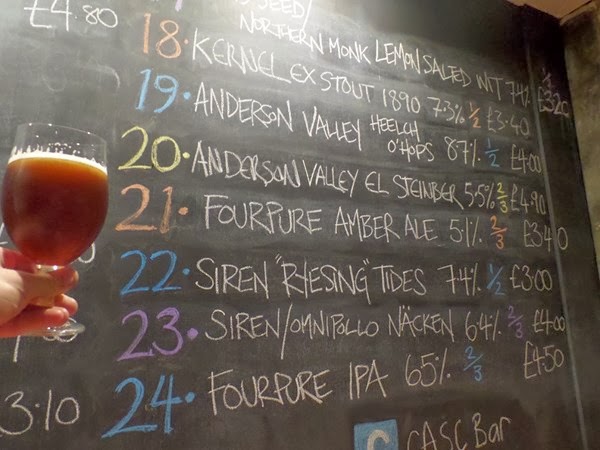 £4.80
SEED/
NORTHERN MONK LEMON SALTED WIT 7.4% 1/2 £3.20
18. KERNEL EX STOUT 1890 7.3% 1/2 £3.40
19. ANDERSON VALLEY HEELCH O'HOPS 8.7% 1/2 £4.00
20. ANDERSON VALLEY EL STEINBER 5.5% 2/3 £4.90
21. FOURPURE AMBER ALE 5.1% 2/3 £3.40
22. SIREN "RYESING" TIDES 7.4% 1/2 £3.00
23. SIREN/OMNIPOLLO NÄCKEN 6.4% 2/3 £4.00
24. FOURPURE IPA 6.5% 2/3 £4.50
3.10
CASC Bar